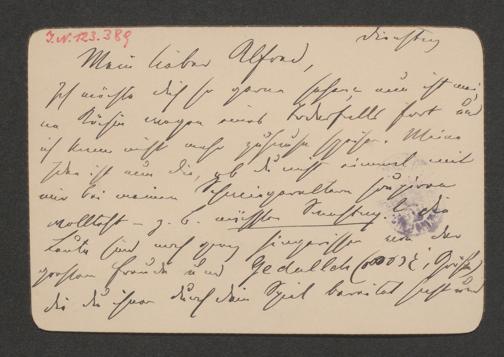 I.N. 123.389
Dienstag
Mein lieber Alfred,
Ich möchte dich so gerne sehen, nun ist mei-
ne Köchin wegen eines Todesfalls fort und
ich kann nicht mehr zuhause speisen. Meine
Idee ist nun die, ob du nicht einmal mit
mir bei meinen Schwiegereltern soupieren
wolltest – z. B. nächsten Samstag. Die
Leute sind noch ganz hingerissen von der
grossen Freude und
die du ihnen durch dein Spiel bereitet hast und